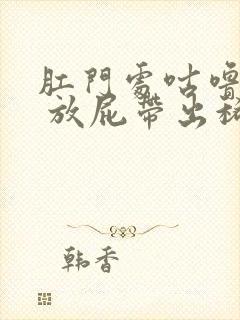 肛門處咕嚕
放屁帶出
韩香